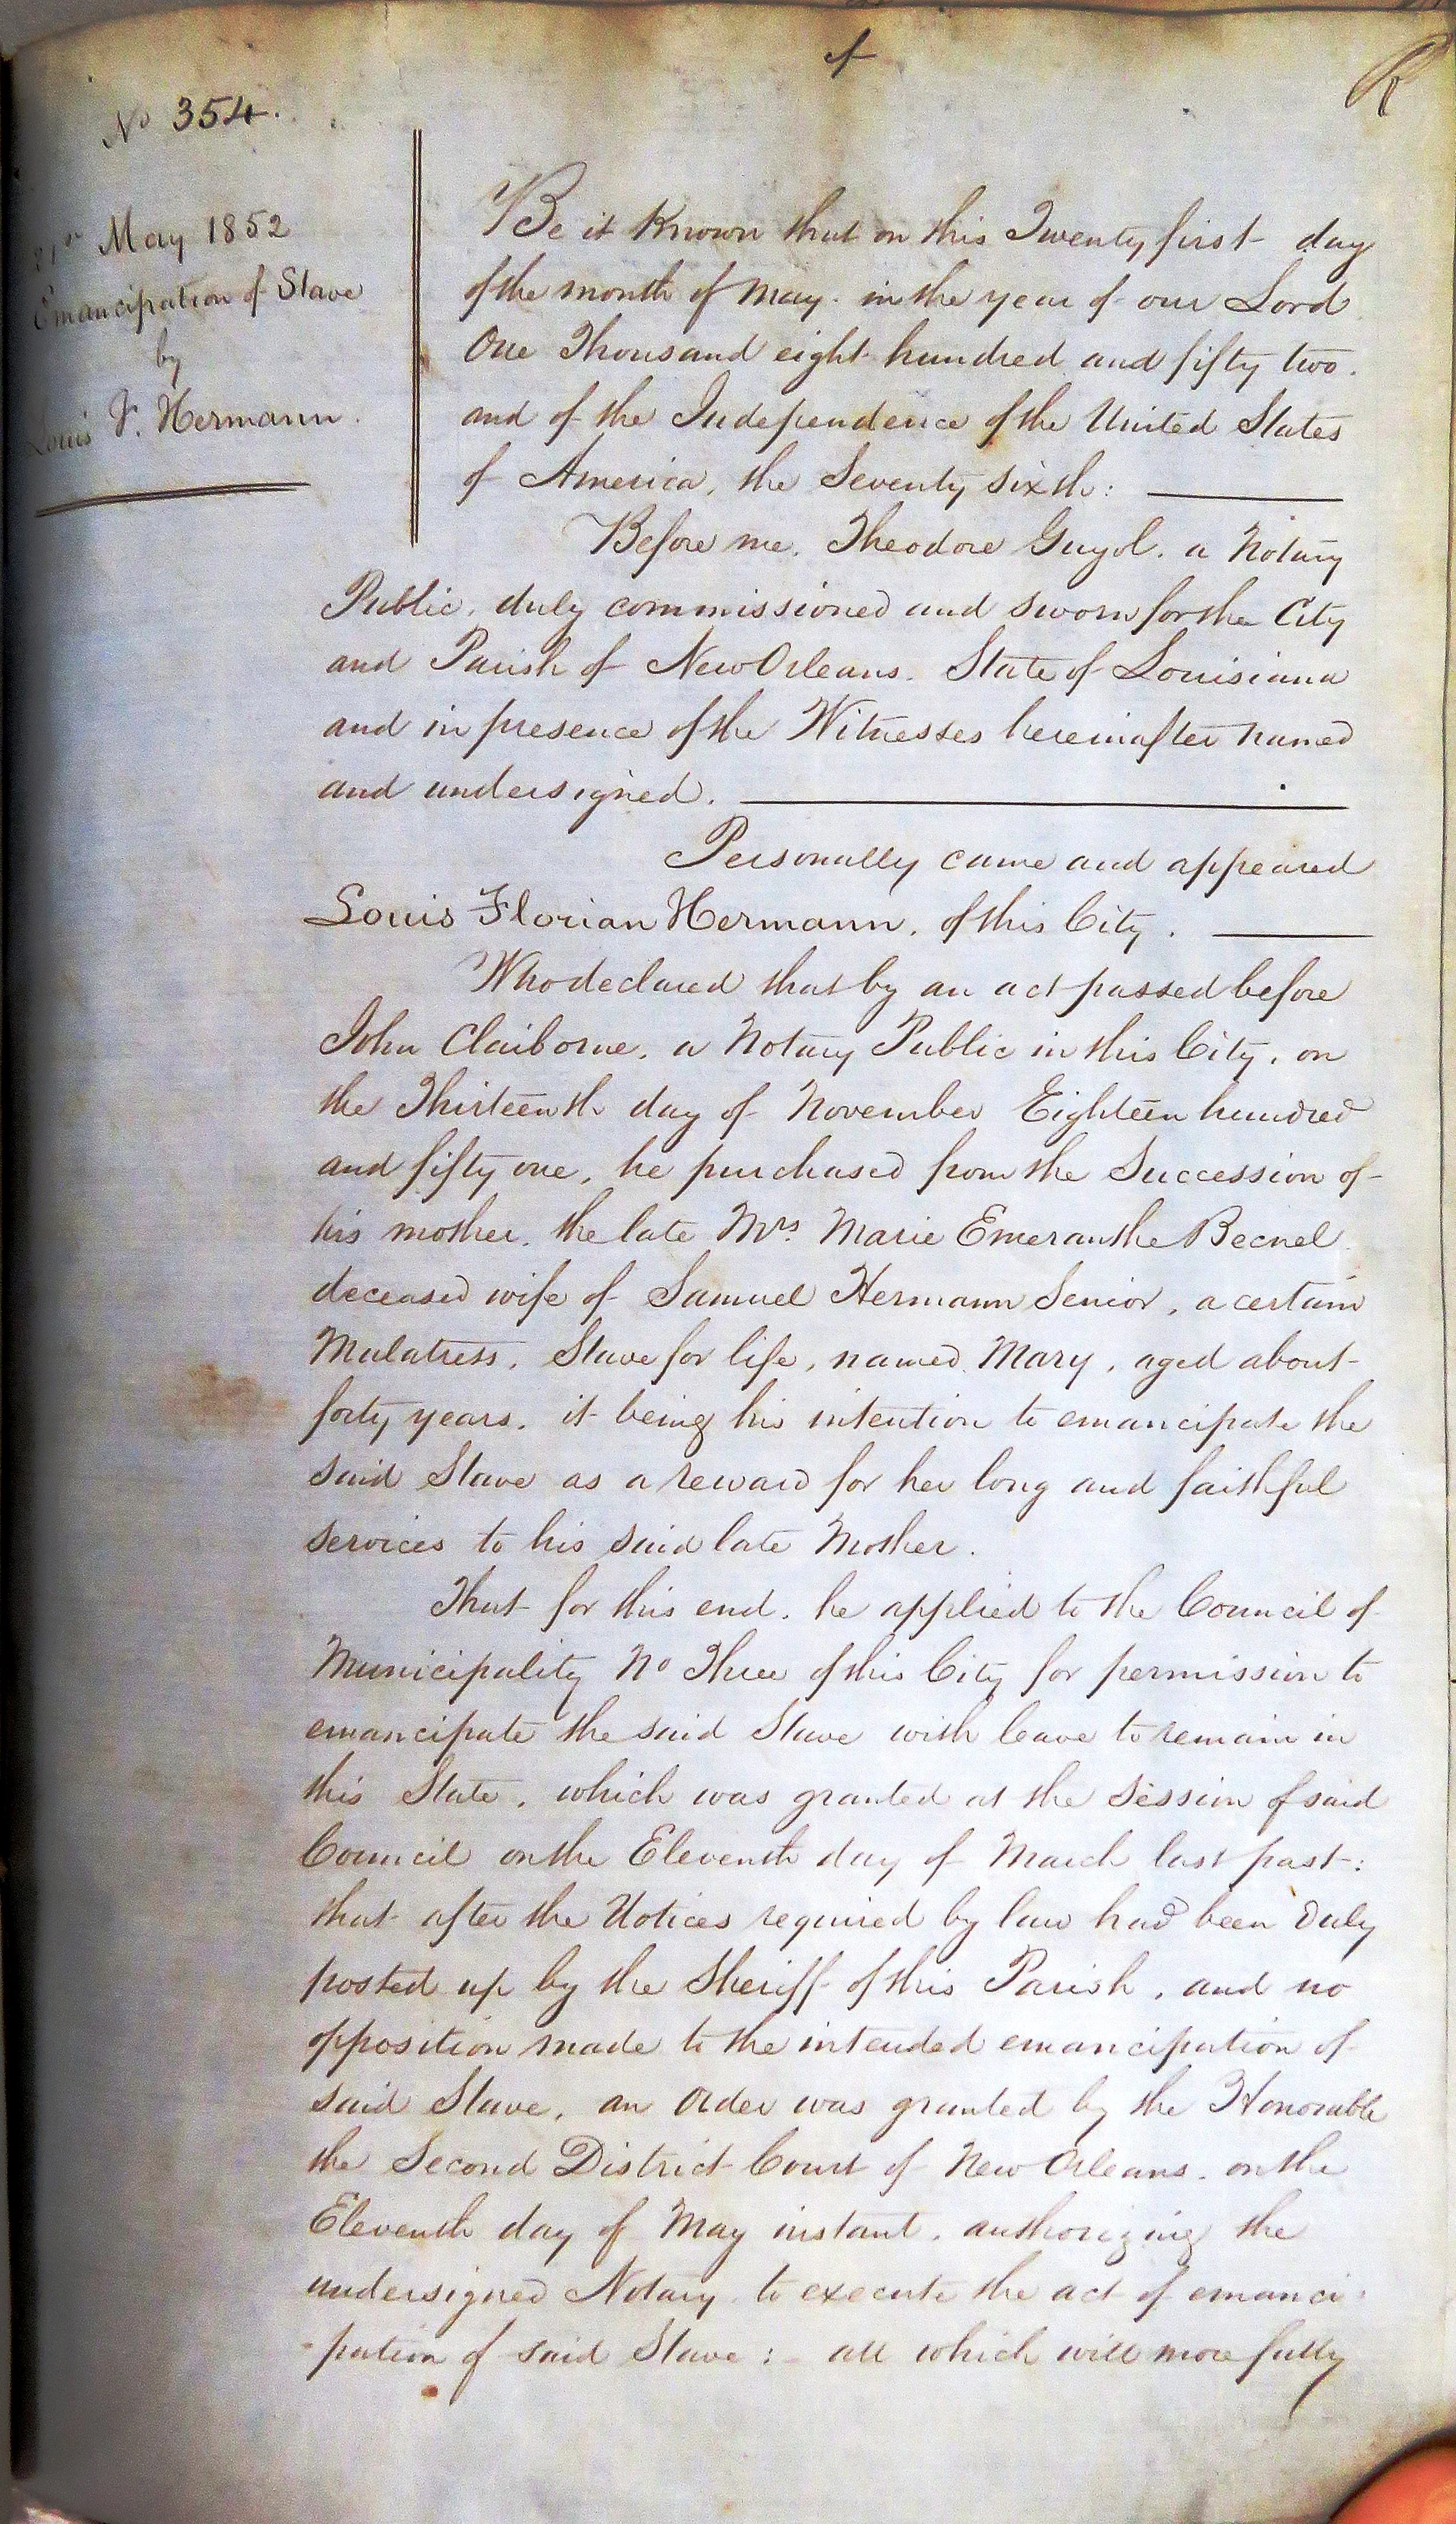 No 354.
21st May 1852
Emancipation of Slave
by
Louis F. Hermann.
Be it Known that on this Twenty first day
of the month of May. in the year of our Lord
One Thousand eight hundred and fifty two.
and of the Independence of the United States
of America, the Seventy sixth:
Before me. Theodore Guyol. a Notary
Public, duly commissioned and sworn for the City
and Parish of New Orleans. State of Louisiana
and in presence of the Witnesses hereinafter named
and undersigned.
Personally came and appeared
Louis Florian Hermann, of this City.
Who declared that by an act passed before
John Claiborne, a Notary Public in this City, on
the Thirteenth day of November Eighteen hundred
and fifty one, he purchased from the Succession of
his mother, the late Mrs. Marie Emeranthe Becnel
deceased wife of Samuel Hermann Senior, a certain
Mulatress, Slave for life, named Mary, aged about
forty years. it being his intention to emancipate the
said Slave as a reward for her long and faithful
services to his said late Mother.
That for this end. he applied to the Council of
Municipality No Three of this City for permission to
emancipate the said Slave with leave to remain in
this State, which was granted at the Session of said
Council on the Eleventh day of March last past:
that after the Notices required by law had been duly
posted up by the Sheriff of this Parish, and no
opposition made to the intended emancipation of
said Slave, an Order was granted by the Honorable
the Second District Court of New Orleans. on the
Eleventh day of May instant, authorizing the
undersigned Notary to execute the act of emanci-
-pation of said Slave: all which will more fully